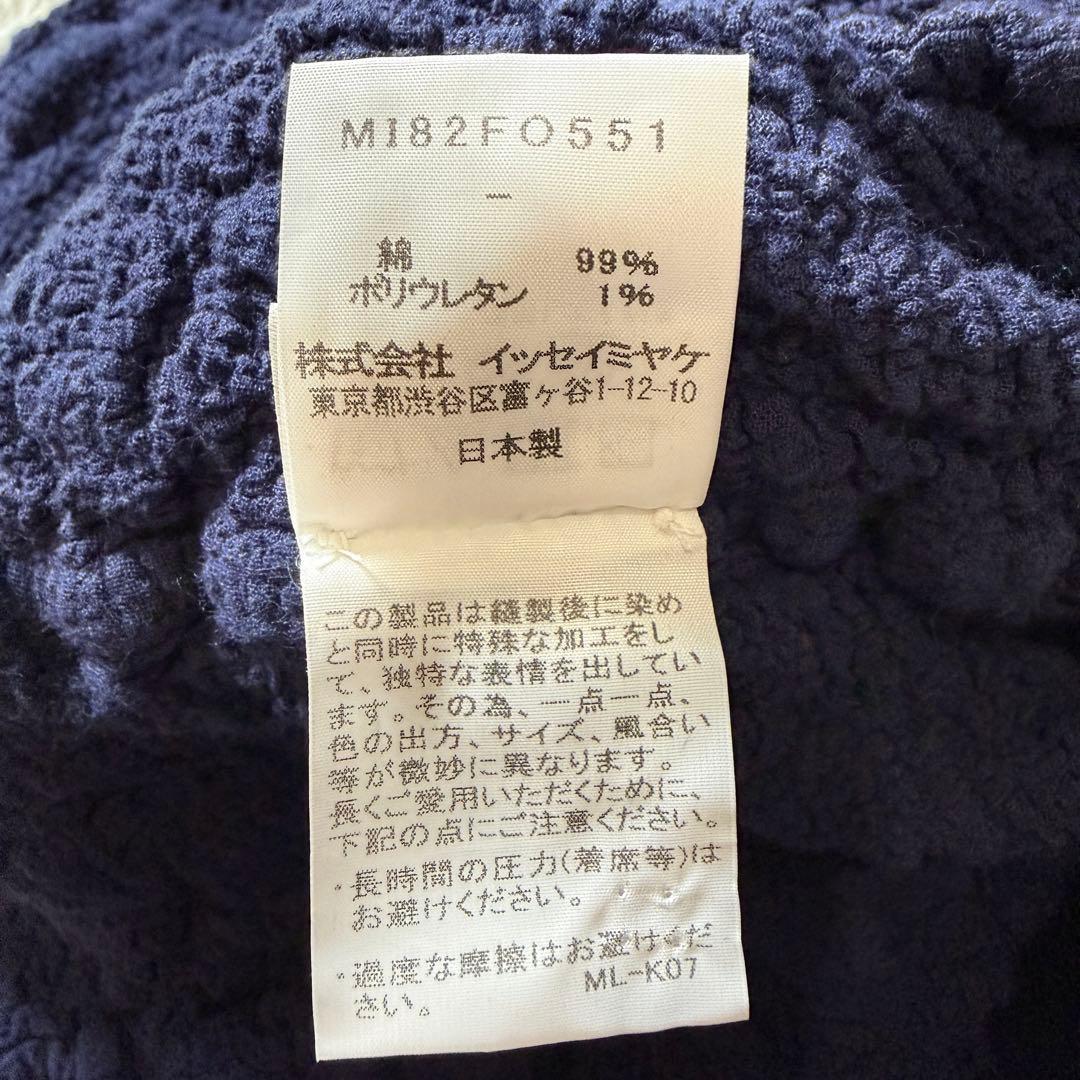 MI82FO551
—
綿 99%
ポリウレタン 1%
株式会社 イッセイミヤケ
東京都渋谷区富ヶ谷1-12-10
日本製
この製品は縫製後に染め
と同時に特殊な加工をし
て、独特な表情を出してい
ます。その為、一点一点、
色の出方、サイズ、風合い
等が微妙に異なります。
長くご愛用いただくために、
下記の点にご注意ください。
・長時間の圧力(着席等)は
お避けください。
・過度な摩擦はお避けくだ
さい。
ML-K07